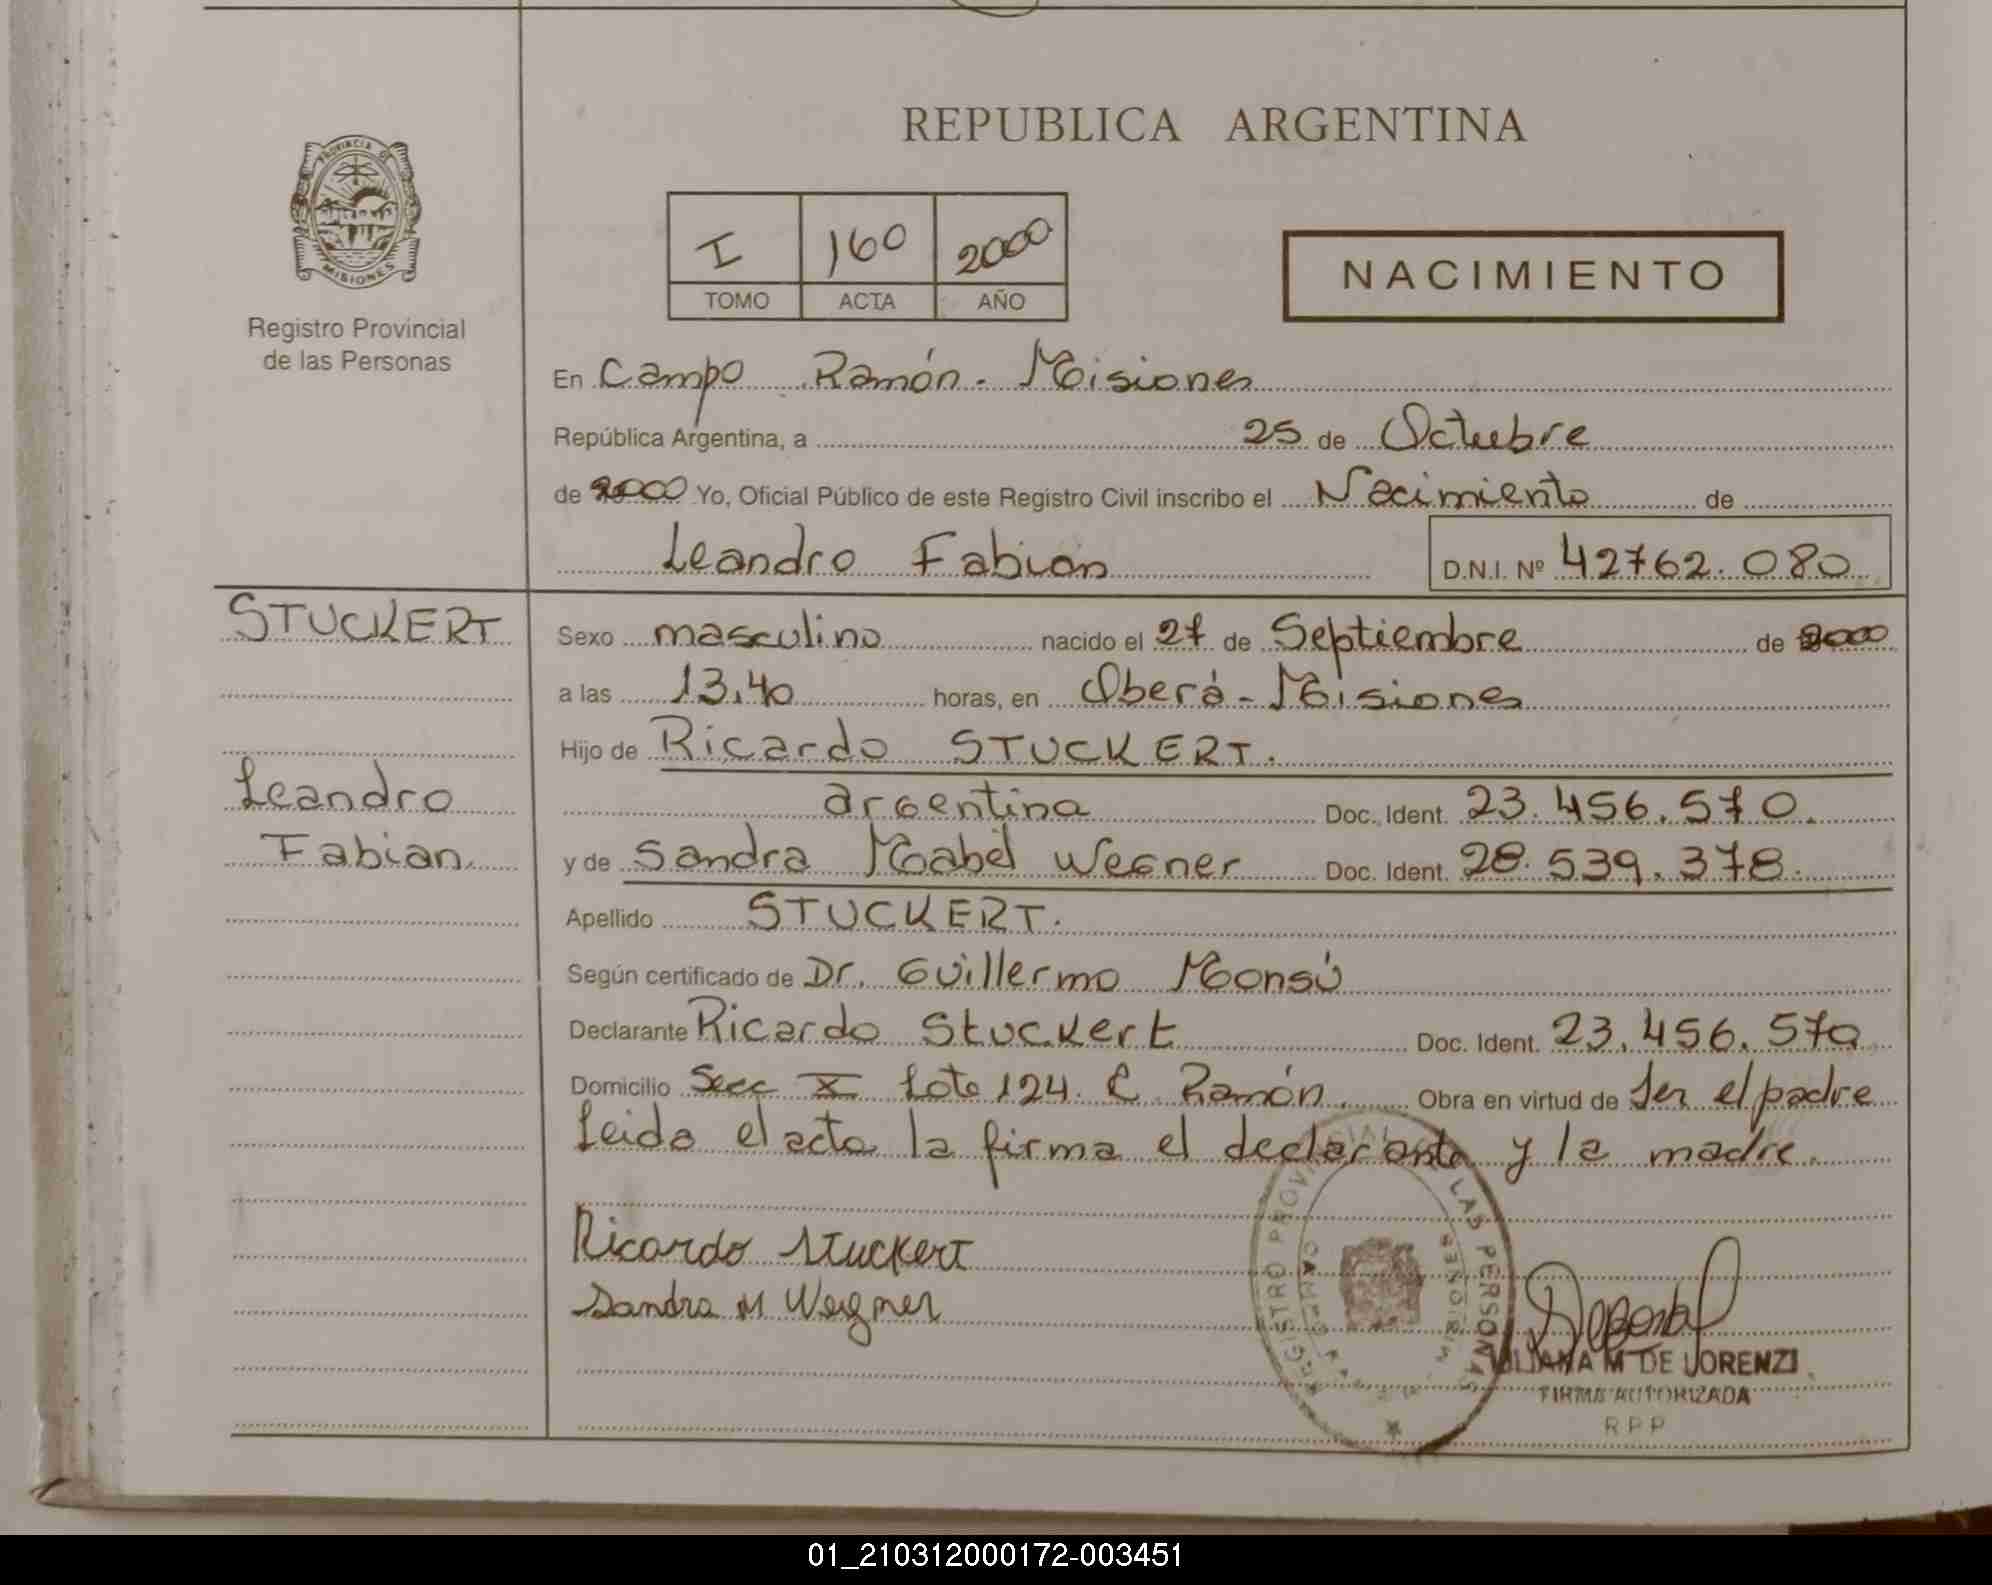 REPUBLICA ARGENTINA
PROVINCIA DE
MISIONES
Registro Provincial
de las Personas
I 160 2000
TOMO ACTA AÑO
NACIMIENTO
En Campo Ramón - Misiones
República Argentina, a 25 de Octubre
de 2000 Yo, Oficial Público de este Registro Civil inscribo el Nacimiento de
Leandro Fabian D.N.I. Nº 42762.080
STUCKERT
Leandro
Fabian
Sexo masculino nacido el 27 de Septiembre de 2000
a las 13.40 horas, en Oberá - Misiones
Hijo de Ricardo STUCKERT.
argentina Doc. Ident. 23.456.570.
y de Sandra Mabel Wegner Doc. Ident. 28.539.378.
Apellido STUCKERT.
Según certificado de Dr. Guillermo Monsú
Declarante Ricardo Stuckert Doc. Ident. 23.456.570
Domicilio Secc X Lote 124. C. Ramón. Obra en virtud de ser el padre
Leida el acta la firma el declarante y la madre.
Ricardo Stuckert
Sandra M Wegner
REGISTRO PROVINCIAL LAS PERSONAS
MISIONES
LILIANA M DE LORENZI
FIRMA AUTORIZADA
R P P
01_210312000172-003451